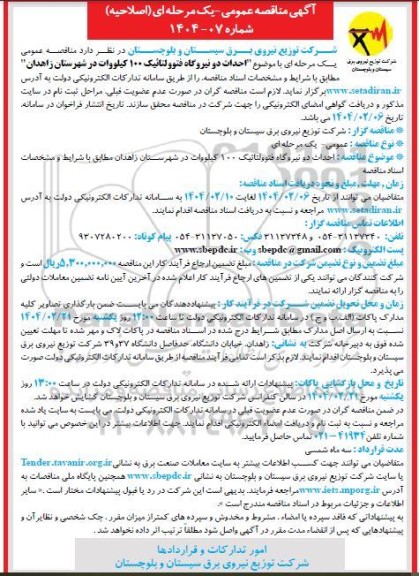 آگهی مناقصه عمومی-یک مرحله ای (اصلاحیه)
شماره ۰۷-۱۴۰۴
شرکت توزیع نیروی برق
سیستان و بلوچستان
شرکت توزیع نیروی برق سیستان و بلوچستان در نظر دارد مناقصه عمومی
یک مرحله ای با موضوع "احداث دو نیروگاه فتوولتائیک ۱۰۰ کیلووات در شهرستان زاهدان"
مطابق با شرایط و مشخصات اسناد مناقصه، را از طریق سامانه تدارکات الکترونیکی دولت به آدرس
www.setadiran.ir برگزار نماید. لازم است مناقصه گران در صورت عدم عضویت قبلی، مراحل ثبت نام در سایت
مذکور و دریافت گواهی امضای الکترونیکی را جهت شرکت در مناقصه محقق سازند. تاریخ انتشار فراخوان در سامانه،
تاریخ ۱۴۰۴/۰۲/۰۶ می باشد.
* مناقصه گزار : شرکت توزیع نیروی برق سیستان و بلوچستان
* نوع مناقصه : عمومی- یک مرحله ای
* موضوع مناقصه : احداث دو نیروگاه فتوولتائیک ۱۰۰ کیلووات در شهرستان زاهدان مطابق با شرایط و مشخصات
اسناد مناقصه
زمان ، مهلت ، مبلغ و نحوه دریافت اسناد مناقصه:
متقاضیان می توانند از تاریخ ۱۴۰۴/۰۲/۰۶ لغایت ۱۴۰۴/۰۲/۱۰ به سامانه تدارکات الکترونیکی دولت به آدرس
www.setadiran.ir مراجعه و نسبت به دریافت اسناد مناقصه اقدام نمایند.
اطلاعات تماس مناقصه گزار :
تلفن: ۳۱۱۳۷۳۴۰-۰۵۴ و ۳۱۱۳۷۳۴۸ فکس: ۳۱۱۳۷۰۵۰-۰۵۴ پیام کوتاه: ۹۳۰۷۲۸۰۲۰۰
پست الکترونیک : sbepdc@gmail.com وب: www.sbepdc.ir
مبلغ تضمین و نوع تضمین شرکت در مناقصه : مبلغ تضمین ارجاع فرآیند کار این مناقصه ۵,۳۰۰,۰۰۰,۰۰۰ ریال است و
شرکت کنندگان می توانند یکی از تضمین های ارجاع فرآیند کار اعلام شده در آخرین آیین نامه تضمین معاملات دولتی
را به مناقصه گزار ارائه نمایند.
زمان و محل تحویل تضمین شرکت در فرآیند کار : پیشنهاددهندگان می بایست ضمن بارگذاری تصاویر کلیه
مدارک پاکات (الف، ب و ج) ، در سامانه تدارکات الکترونیکی دولت تا ساعت ۱۲:۰۰ روز یکشنبه مورخ ۱۴۰۴/۰۲/۲۱
نسبت به ارسال اصل مدارک مطابق شرایط درج شده در اسناد مناقصه در پاکات لاک و مهر شده تا مهلت تعیین
شده فوق به دبیرخانه شرکت به نشانی: زاهدان، خیابان دانشگاه، حدفاصل دانشگاه ۳۷و۳۹ شرکت توزیع نیروی برق
سیستان و بلوچستان اقدام نمایند. لازم بذکر است تمامی فرآیند مناقصه از طریق سامانه تدارکات الکترونیکی دولت صورت
می پذیرد.
تاریخ و محل بازگشایی پاکات: پیشنهادات ارائه شده در سامانه تدارکات الکترونیکی دولت در ساعت ۱۳:۰۰ روز
یکشنبه مورخ ۱۴۰۴/۰۲/۲۱ در سالن کنفرانس شرکت توزیع نیروی برق سیستان و بلوچستان گشایش خواهد شد.
در ضمن مناقصه گران در صورت عدم عضویت قبلی در سامانه تدارکات الکترونیکی دولت، می بایست به سایت یاد شده
مراجعه و نسبت به ثبت نام و دریافت امضاء الکترونیکی اقدام نمایند. جهت اطلاعات بیشتر در این خصوص می توانید با
شماره تلفن ۴۱۹۳۴-۰۲۱ تماس حاصل فرمایید.
مدت قرارداد : سه ماه شمسی
متقاضیان می توانند جهت کسب اطلاعات بیشتر به سایت معاملات صنعت برق به نشانی Tender.tavanir.org.ir
یا سایت شرکت توزیع نیروی برق سیستان و بلوچستان به نشانی www.sbepdc.ir همچنین پایگاه ملی مناقصات به
آدرس www.iets.mporg.ir مراجعه فرمایند. بدیهی است این شرکت در رد یا قبول پیشنهادات مختار است. « سایر
اطلاعات و جزئیات مربوط در اسناد مناقصه مندرج است ».
به پیشنهاداتی که فاقد سپرده یا امضاء ، مشروط و مخدوش و سپرده های کمتر از میزان مقرر ، چک شخصی و نظایر آن و
پیشنهادهایی که پس از انقضاء مدت مقرر در آگهی واصل شود مطلقاً ترتیب اثر داده نخواهد شد .
امور تدارکات و قراردادها
شرکت توزیع نیروی برق سیستان و بلوچستان